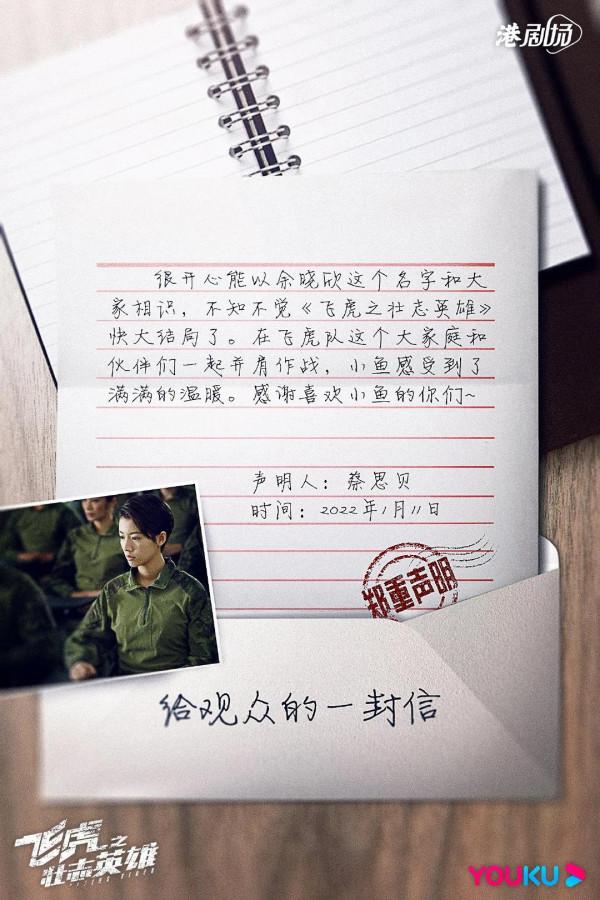 港剧场
很开心能以余晓欣这个名字和大
家相识，不知不觉《飞虎之壮志英雄》
快大结局了。在飞虎队这个大家庭和
伙伴们一起并肩作战，小鱼感受到了
满满的温暖。感谢喜欢小鱼的你们~
声明人：蔡思贝
时间：2022年1月11日
郑重声明
给观众的一封信
飞虎之
壮志英雄
YOUKU